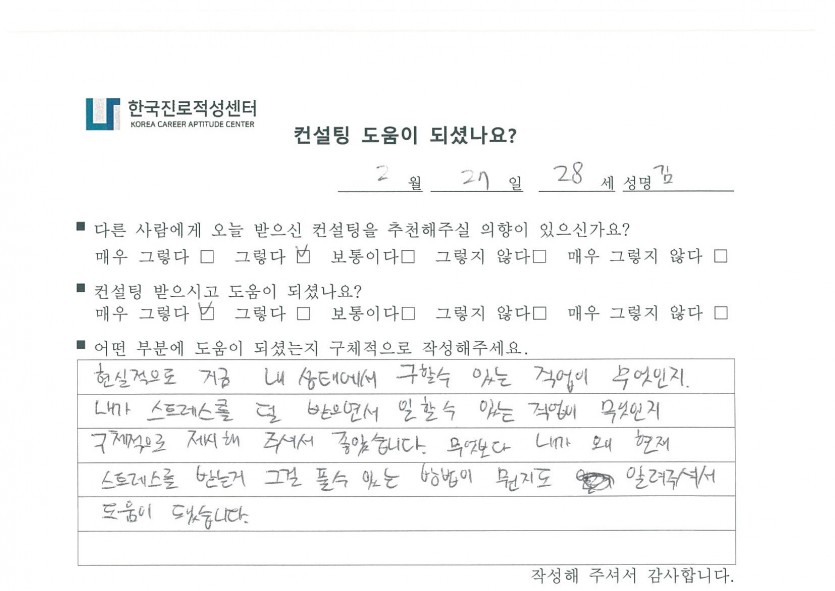 한국진로적성센터
KOREA CAREER APTITUDE CENTER
컨설팅 도움이 되셨나요?
2 월 27 일 28 세 성명 김
■ 다른 사람에게 오늘 받으신 컨설팅을 추천해주실 의향이 있으신가요?
매우 그렇다 □ 그렇다 ☑ 보통이다□ 그렇지 않다□ 매우 그렇지 않다 □
■ 컨설팅 받으시고 도움이 되셨나요?
매우 그렇다 ☑ 그렇다 □ 보통이다□ 그렇지 않다□ 매우 그렇지 않다 □
■ 어떤 부분에 도움이 되셨는지 구체적으로 작성해주세요.
현실적으로 지금 내 상태에서 구할수 있는 직업이 무엇인지.
내가 스트레스를 덜 받으면서 일할수 있는 직업이 무엇인지
구체적으로 제시해 주셔서 좋았습니다. 무엇보다 내가 왜 현재
스트레스를 받는거 그걸 풀수 있는 방법이 뭔지도 알려주셔서
도움이 됐습니다.
작성해 주셔서 감사합니다.